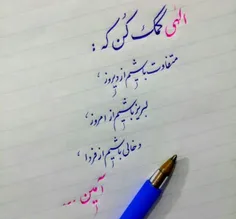 الهی کمک کُن که :
متفاوت باشیم از دیروز ،
لبریز باشیم از امروز ،
و خالی باشیم از فردا ،
آمین ...